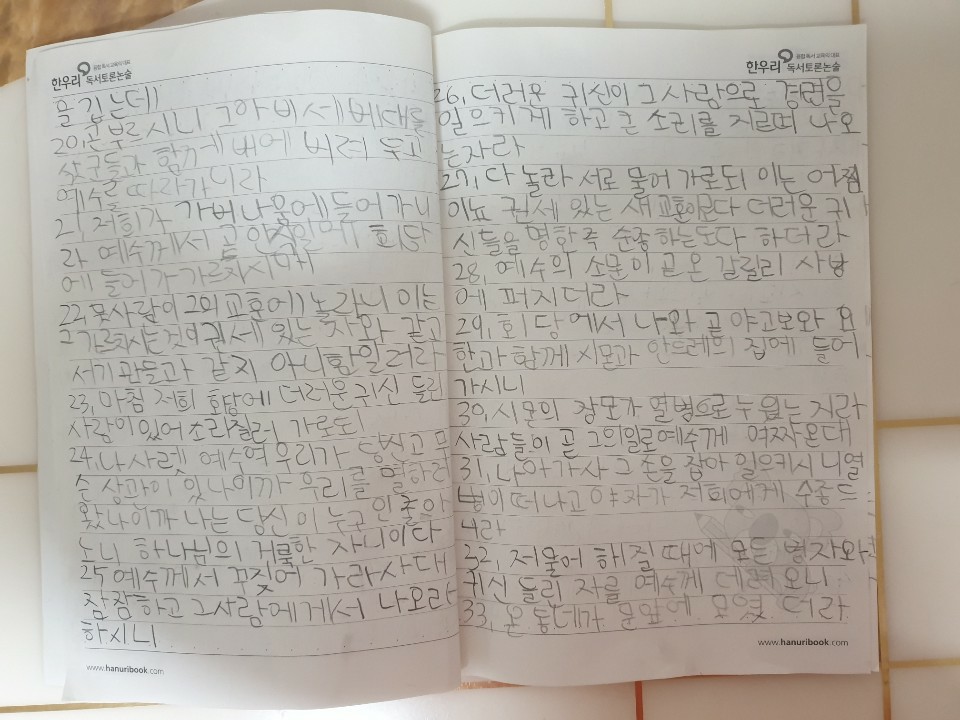 한우리 독서토론논술
을 깁는데
20, 곧 부르시니 그 아비 세베대를
삯군들과 함께 배에 버려 두고
예수를 따라가니라
21, 저희가 가버나움에 들어가니
라 예수께서 곧 안식일에 회당
에 들어가 가르치시매
22, 뭇사람이 그의 교훈에 놀라니 이는
그 가르치시는 것이 권세 있는 자와 같고
서기관들과 같지 아니함일러라
23, 마침 저희 회당에 더러운 귀신 들린
사람이 있어 소리질러 가로되
24, 나사렛 예수여 우리가 당신고 무
슨 상과이 있나이까 우리를 멸하러
왔나이까 나는 당신이 누구인 줄 아
노니 하나님의 거룩한 자니이다
25 예수께서 꾸짖어 가라사대
잠잠하고 그 사람에게서 나오라
하시니
www.hanuribook.com
융합 독서 교육의 대표
한우리 독서토론논술
26, 더러운 귀신이 그 사람으로 경련을
일으키게 하고 큰 소리를 지르며 나오
는지라
27, 다 놀라 서로 물어 가로되 이는 어찜
이뇨 권세 있는 새 교훈이로다 더러운 귀
신들을 명한즉 순종하는도다 하더라
28, 예수의 소문이 곧 온 갈릴리 사방
에 퍼지더라
29, 회당에서 나와 곧 야고보와 요
한과 함께 시몬과 안드레의 집에 들어
가시니
30, 시몬의 장모가 열병으로 누웠는지라
사람들이 곧 그의 일로 예수께 여짜온대
31, 나아가사 그 손을 잡아 일으키시니 열
병이 떠나고 여자가 저희에게 수종드
니라
32, 저물어 해 질 때에 모든 병자와
귀신 들린 자를 예수께 데려오니
33, 온 동네가 문 앞에 모였더라
www.hanuribook.com